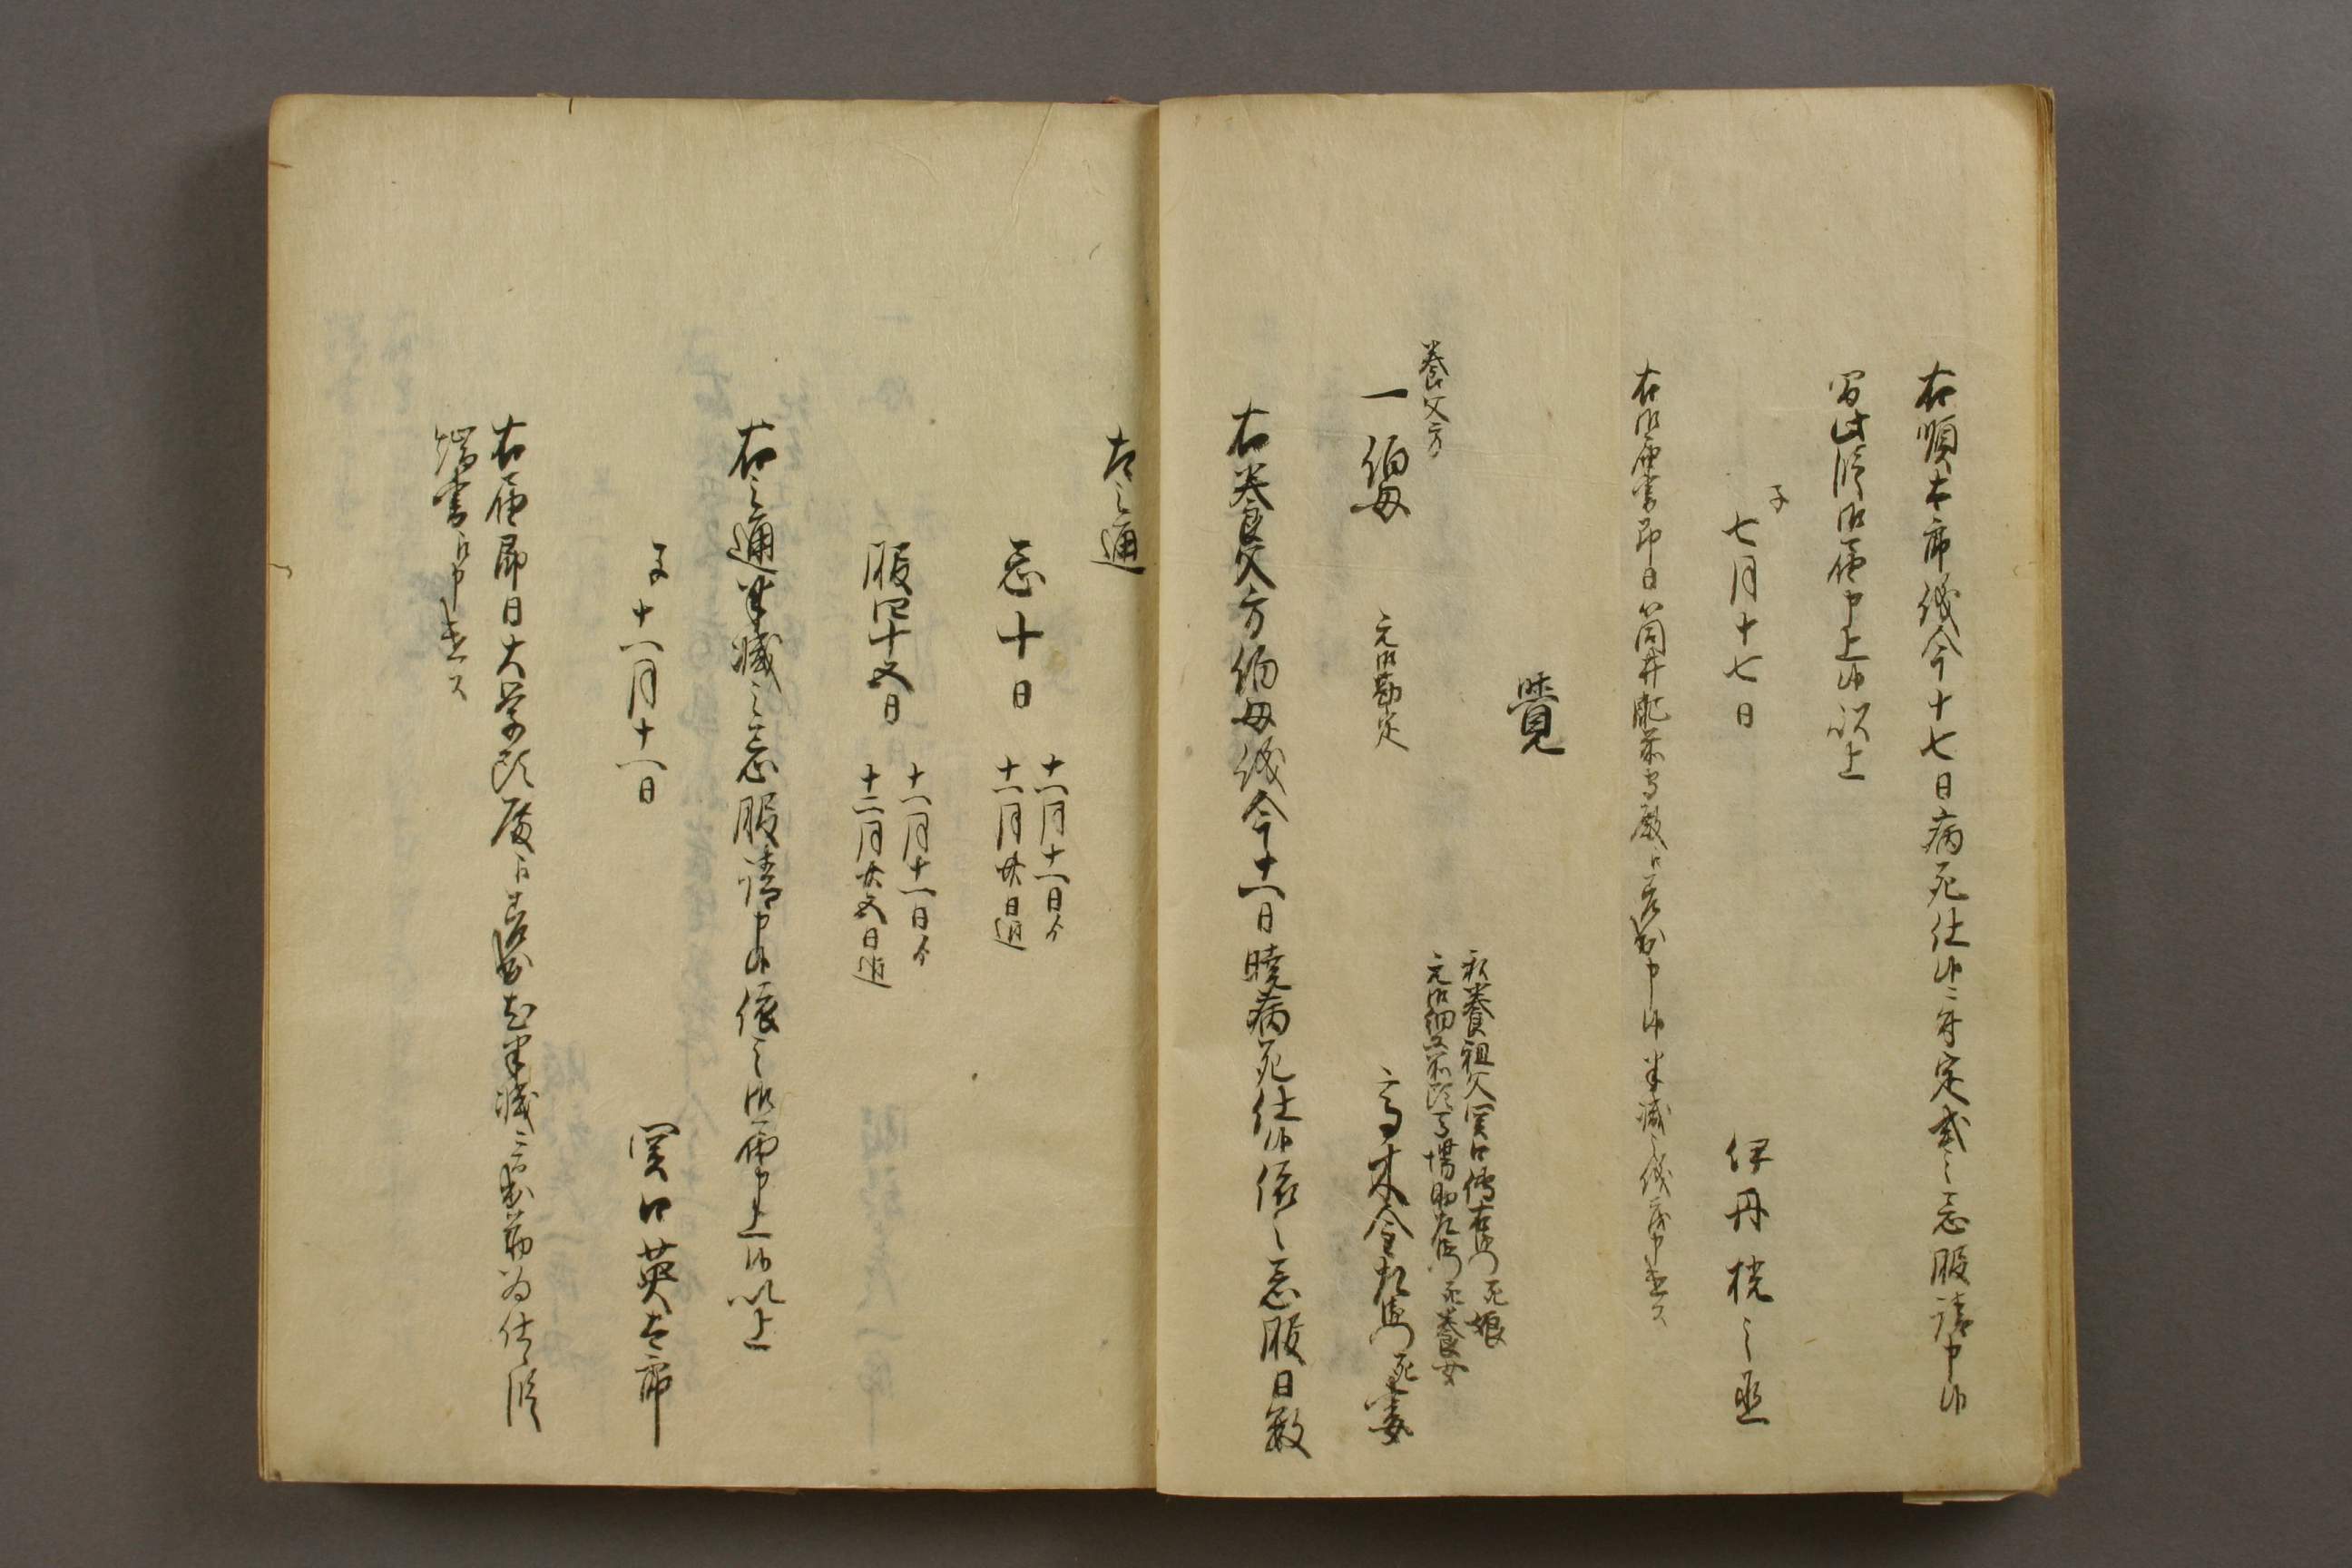 右順太郎儀今十七日病死仕候ニ付定式之忌服請申候
間此段御届申上候以上
子
七月十七日
伊丹桄之丞
右御届書即日筒井肥前守殿江差出申候半減之儀茂申遣ス
覚
養父方
一伯母
元御勘定
私養祖父関口傳右衛門死娘
元御細工所頭馬場助左衛門死養女
高木金左衛門死妻
右養父方伯母儀今十一日暁病死仕候依之忌服日数
左之通
忌十日
十一月十一日ゟ
十一月廿日迄
服四十五日
十一月十一日ゟ
十二月廿五日迄
右之通半減之忌服請申候依之御届申上候以上
子十一月十一日
関口英太郎
右届即日大学頭殿江差出尤半減之書出前為仕段
端書ニ申遣ス